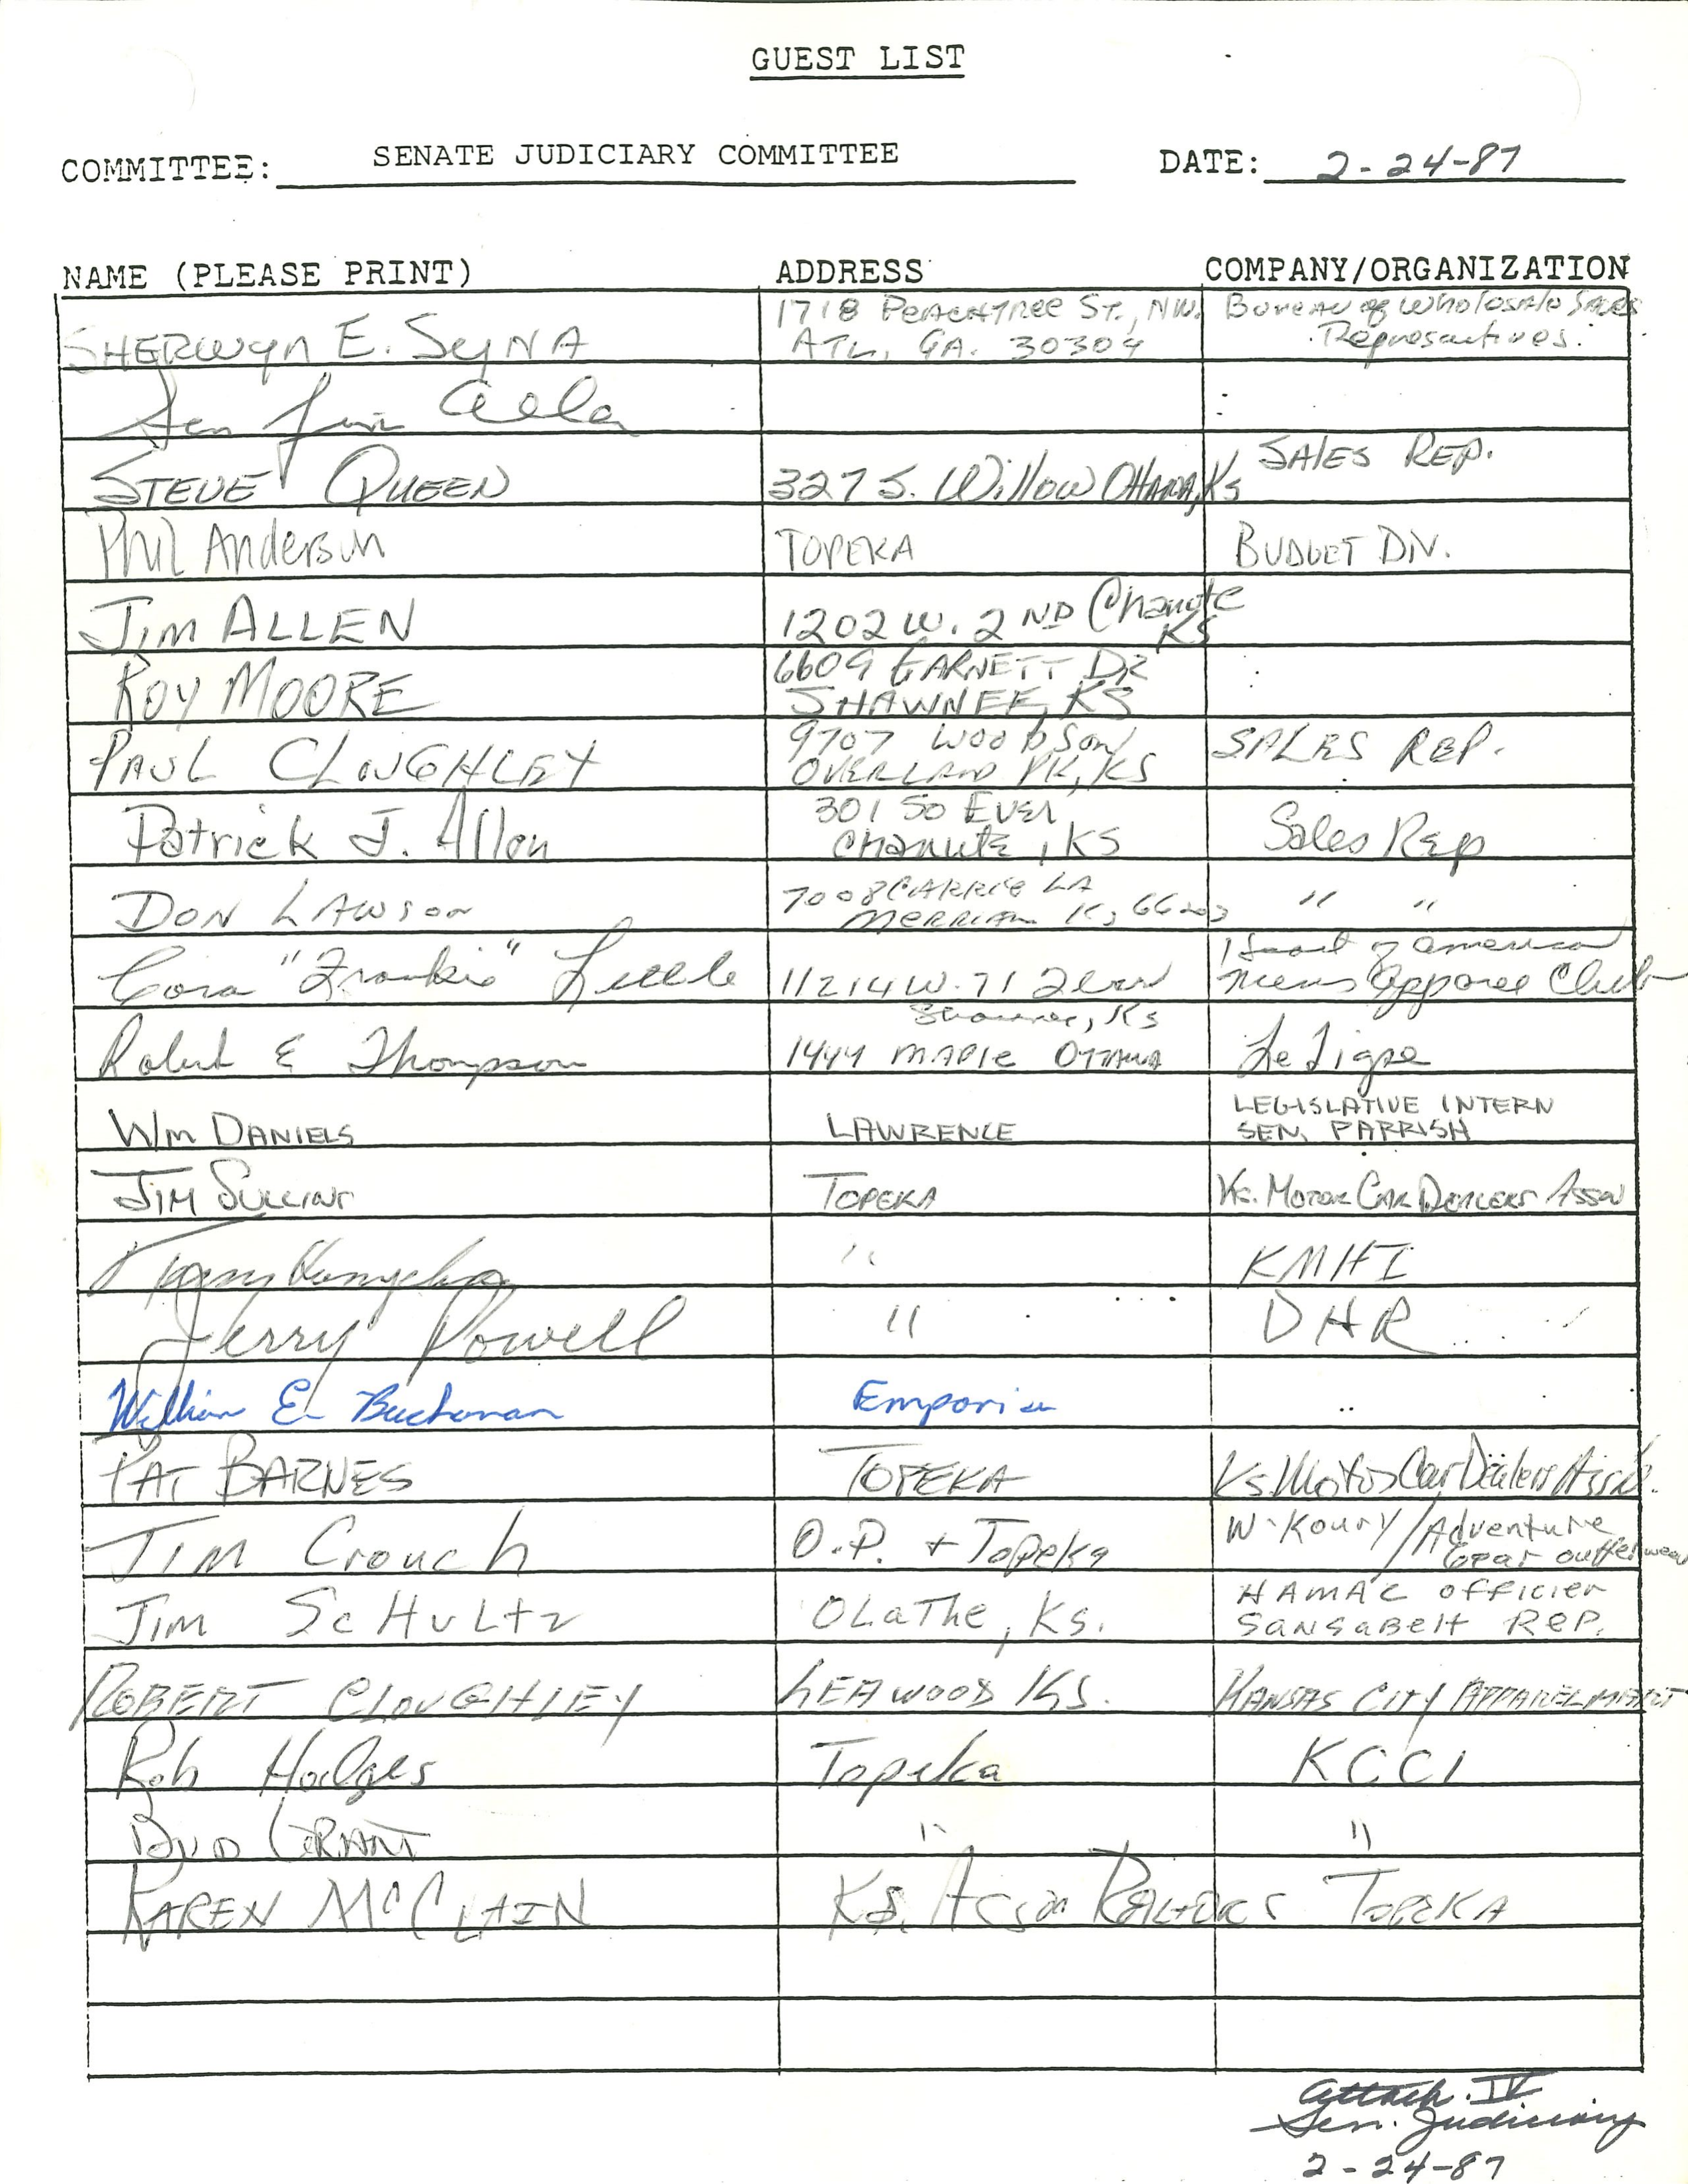 GUEST LIST
COMMITTEE: SENATE JUDICIARY COMMITTEE DATE: 2-24-87
NAME (PLEASE PRINT) ADDRESS COMPANY/ORGANIZATION
1718 PEACHTREE ST., NW. Bureau of Wholesale Sales
SHERWYN E. SYNA ATL, GA. 30309 Representatives.
Sen Jim
STEVE QUEEN 327 S. Willow Ottawa, Ks SALES REP.
Phil Anderson TOPEKA BUDGET DIV.
JIM ALLEN 1202 W. 2ND Chanute KS
ROY MOORE 6609 GARNETT DR
SHAWNEE, KS
PAUL CLOUGHLEY 9707 WOODSON SALES REP.
OVERLAND PK, KS
Patrick J. Allen 301 SO Sales Rep
CHANUTE, KS
DON LAWSON 7008 CARRIE LA " "
MERRIAM KS 66203
Heart of America
Cora "Frankie" 11214 W. 71 Mens Apparel Club
Shawnee, KS
Robert E Thompson 1444 MAPLE OTTAWA Le Tigre
LEGISLATIVE INTERN
WM DANIELS LAWRENCE SEN. PARRISH
JIM SULLINS TOPEKA KS. MOTOR CAR DEALERS ASSN
" KMHI
Jerry Powell " DHR
William E. Buchanan Emporia
PAT BARNES TOPEKA Ks Motor Car Dealers Assn.
JIM Crouch O.P. + Topeka W-Koury/Adventure
Gear outterwear
JIM ScHuLtz OLaThe, Ks. HAMAC officier
SansaBelt REP.
ROBERT CLOUGHLEY LEAWOOD KS. KANSAS CITY APPAREL MART
Rob Hodges Topeka KCCI
BUD GRANT " "
KAREN McCLAIN KS. Assn REALTORS TOPEKA
Attach. IV
Sen. Judiciary
2-24-87